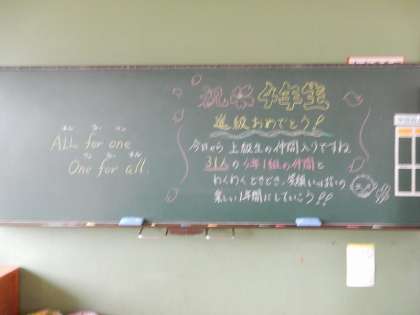 オール フォー ワン
ALL for one
ワン フォー オール
One for all.
祝 4年生
進級おめでとう!!
今日から上級生の仲間入りですね
31人の4年1組の仲間と
わくわくどきどき、笑顔いっぱいの
楽しい1年間にしていこう!!